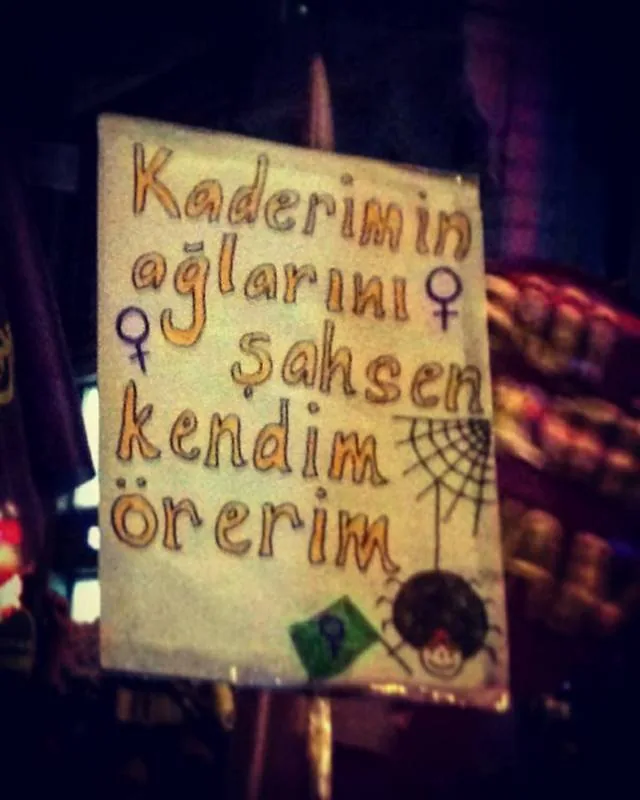 Kaderimin
ağlarını
şahsen
kendim
örerim